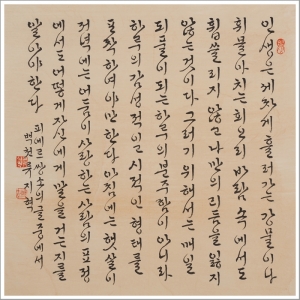 인생은 세차게 흘러가는 강물이나
휘몰아치는 회오리 바람 속에서도
휩쓸리지 않고 나만의 리듬을 잃지
않는 것이다 그러기 위해서는 매일
되풀이되는 하루의 분주함이 아니라
하루의 감성적이고 시적인 형태를
포착하여야만 한다 아침에는 햇살이
저녁에는 어둠이 사랑하는 사람의 표정
에서도 어떻게 자신에게 말을 거는지를
알아야 한다
피에르 쌍소의 글 중에서